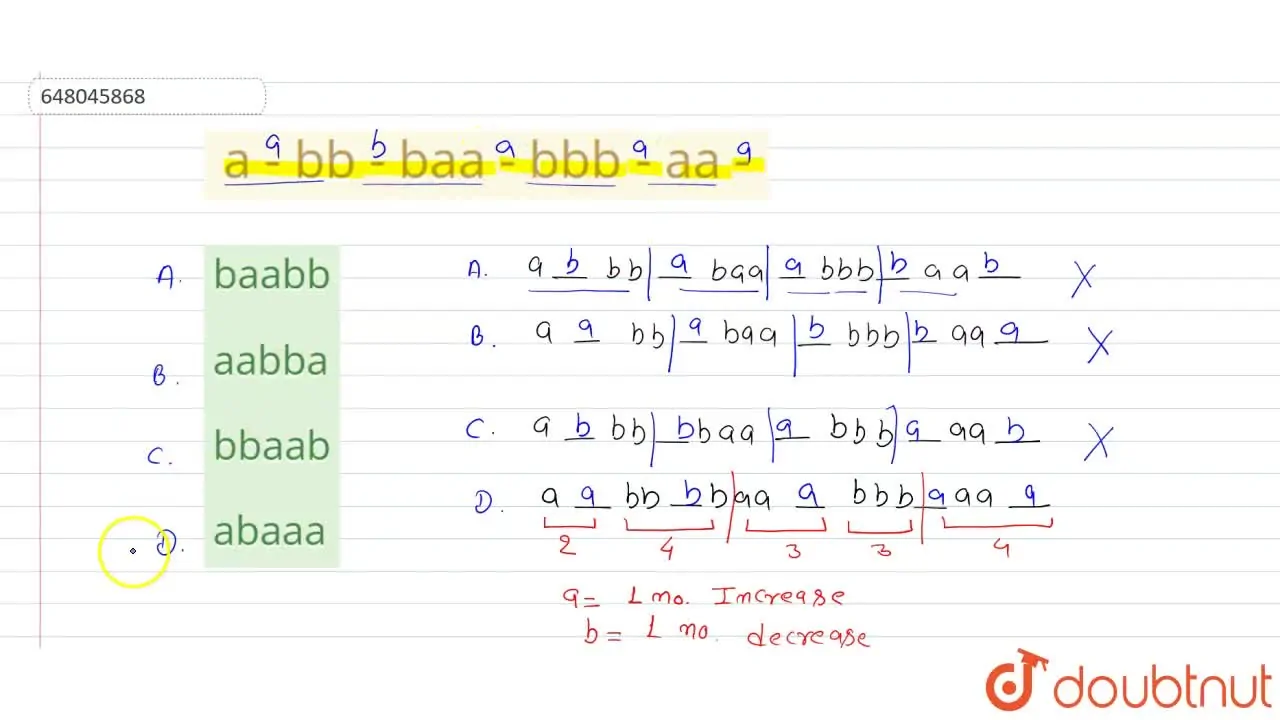 648045868
a - bb - baa - bbb - aa -
a b a a a
A. baabb
B. aabba
C. bbaab
D. abaaa
A. a b bb | a baa | a bbb | b aa b X
B. a a bb | a baa | b bbb | b aa a X
C. a b bb | b baa | a bbb | a aa b X
D. a a bb b b | aa a bbb | a aa a
2 4 3 3 4
a = 1 no. Increase
b = 1 no. decrease
doubtnut